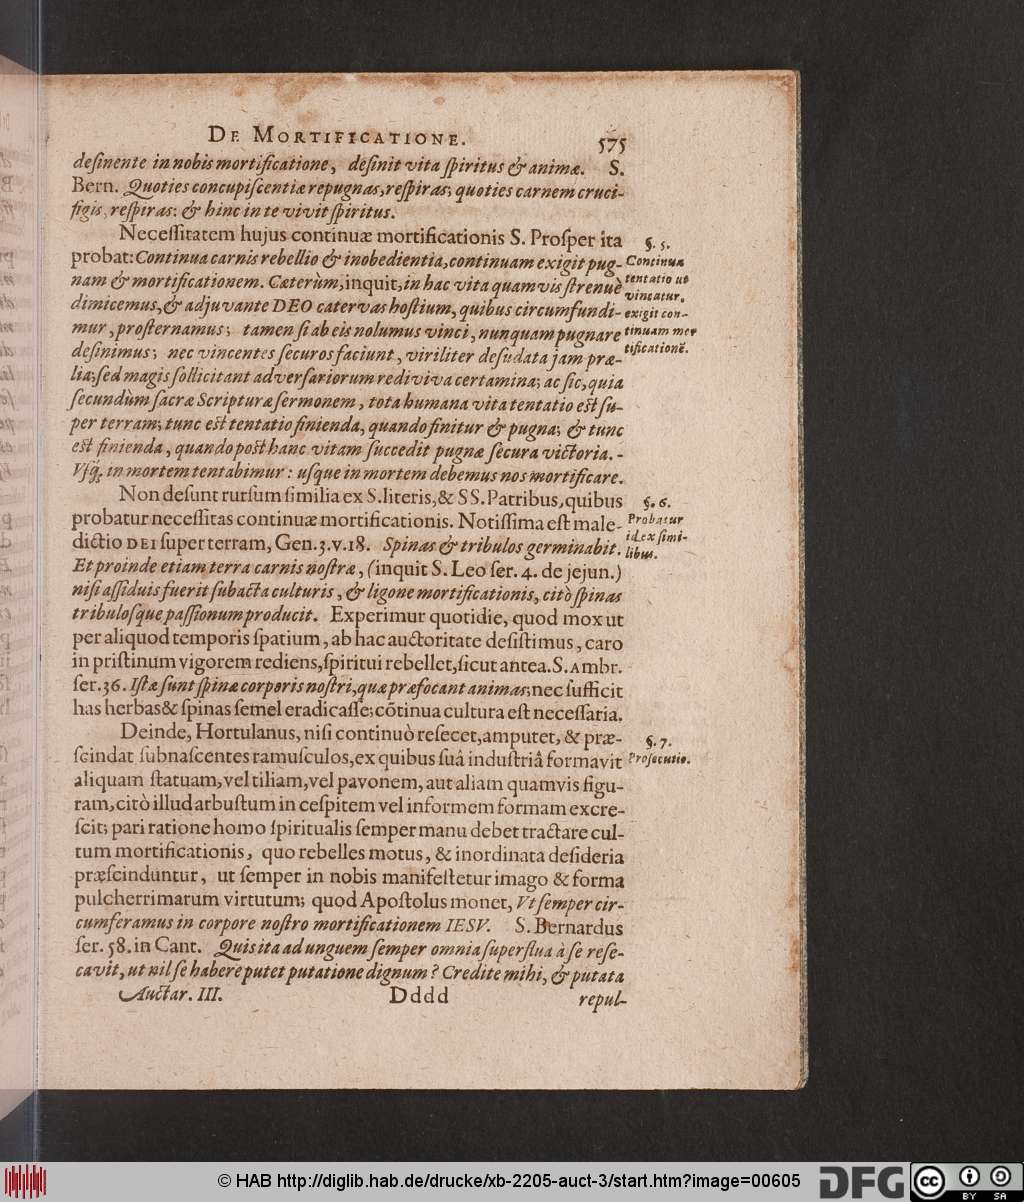 DE MORTIFICATIONE. 575
deſinente in nobis mortificatione, deſinit vita ſpiritus & animæ. S.
Bern. Quoties concupiſcentiæ repugnas, reſpiras; quoties carnem cruci-
figis, reſpiras: & hinc in te vivit ſpiritus.
Neceſſitatem hujus continuæ mortificationis S. Proſper ita
probat: Continua carnis rebellio & inobedientia, continuam exigit pug-
nam & mortificationem. Cæterùm, inquit, in hac vita quamvis ſtrenuè
dimicemus, & adjuvante DEO catervas hoſtium, quibus circumfundi-
mur, proſternamus; tamen ſi ab eis nolumus vinci, nunquam pugnare
deſinimus; nec vincentes ſecuros faciunt, viriliter deſudata jam præ-
lia; ſed magis ſollicitant adverſariorum rediviva certamina; ac ſic, quia
ſecundùm ſacræ Scripturæ ſermonem, tota humana vita tentatio eſt ſu-
per terram; tunc eſt tentatio finienda, quando finitur & pugna; & tunc
eſt finienda, quando poſt hanc vitam ſuccedit pugnæ ſecura victoria. -
Vſq; in mortem tentabimur: uſque in mortem debemus nos mortificare.
§. 5.
Continua
tentatio ut
vincatur,
exigit con-
tinuam mor
tificationē.
Non deſunt rurſum ſimilia ex S. literis, & SS. Patribus, quibus
probatur neceſſitas continuæ mortificationis. Notiſſima eſt male-
dictio DEI ſuper terram, Gen. 3. v. 18. Spinas & tribulos germinabit.
Et proinde etiam terra carnis noſtræ, (inquit S. Leo ſer. 4. de jejun.)
niſi aſſiduis fuerit ſubacta culturis, & ligone mortificationis, citò ſpinas
tribuloſque paſſionum producit. Experimur quotidie, quod mox ut
per aliquod temporis ſpatium, ab hac auctoritate deſiſtimus, caro
in priſtinum vigorem rediens, ſpiritui rebellet, ſicut antea. S. Ambr.
ſer. 36. Iſtæ ſunt ſpinæ corporis noſtri, quæ præfocant animas; nec ſufficit
has herbas & ſpinas ſemel eradicaſſe; cõtinua cultura eſt neceſſaria.
§. 6.
Probatur
id ex ſimi-
libus.
Deinde, Hortulanus, niſi continuò reſecet, amputet, & præ-
ſcindat ſubnaſcentes ramuſculos, ex quibus ſuâ induſtriâ formavit
aliquam ſtatuam, vel tiliam, vel pavonem, aut aliam quamvis figu-
ram, citò illud arbuſtum in ceſpitem vel informem formam excre-
ſcit; pari ratione homo ſpiritualis ſemper manu debet tractare cul-
trum mortificationis, quo rebelles motus, & inordinata deſideria
præſcinduntur, ut ſemper in nobis manifeſtetur imago & forma
pulcherrimarum virtutum; quod Apoſtolus monet, Vt ſemper cir-
cumferamus in corpore noſtro mortificationem IESV. S. Bernardus
ſer. 58. in Cant. Quis ita ad unguem ſemper omnia ſuperflua à ſe reſe-
cavit, ut nil ſe habere putet putatione dignum? Credite mihi, & putata
§. 7.
Proſecutio.
Auctar. III. Dddd repul-
© HAB http://diglib.hab.de/drucke/xb-2205-auct-3/start.htm?image=00605
DFG
cc BY SA